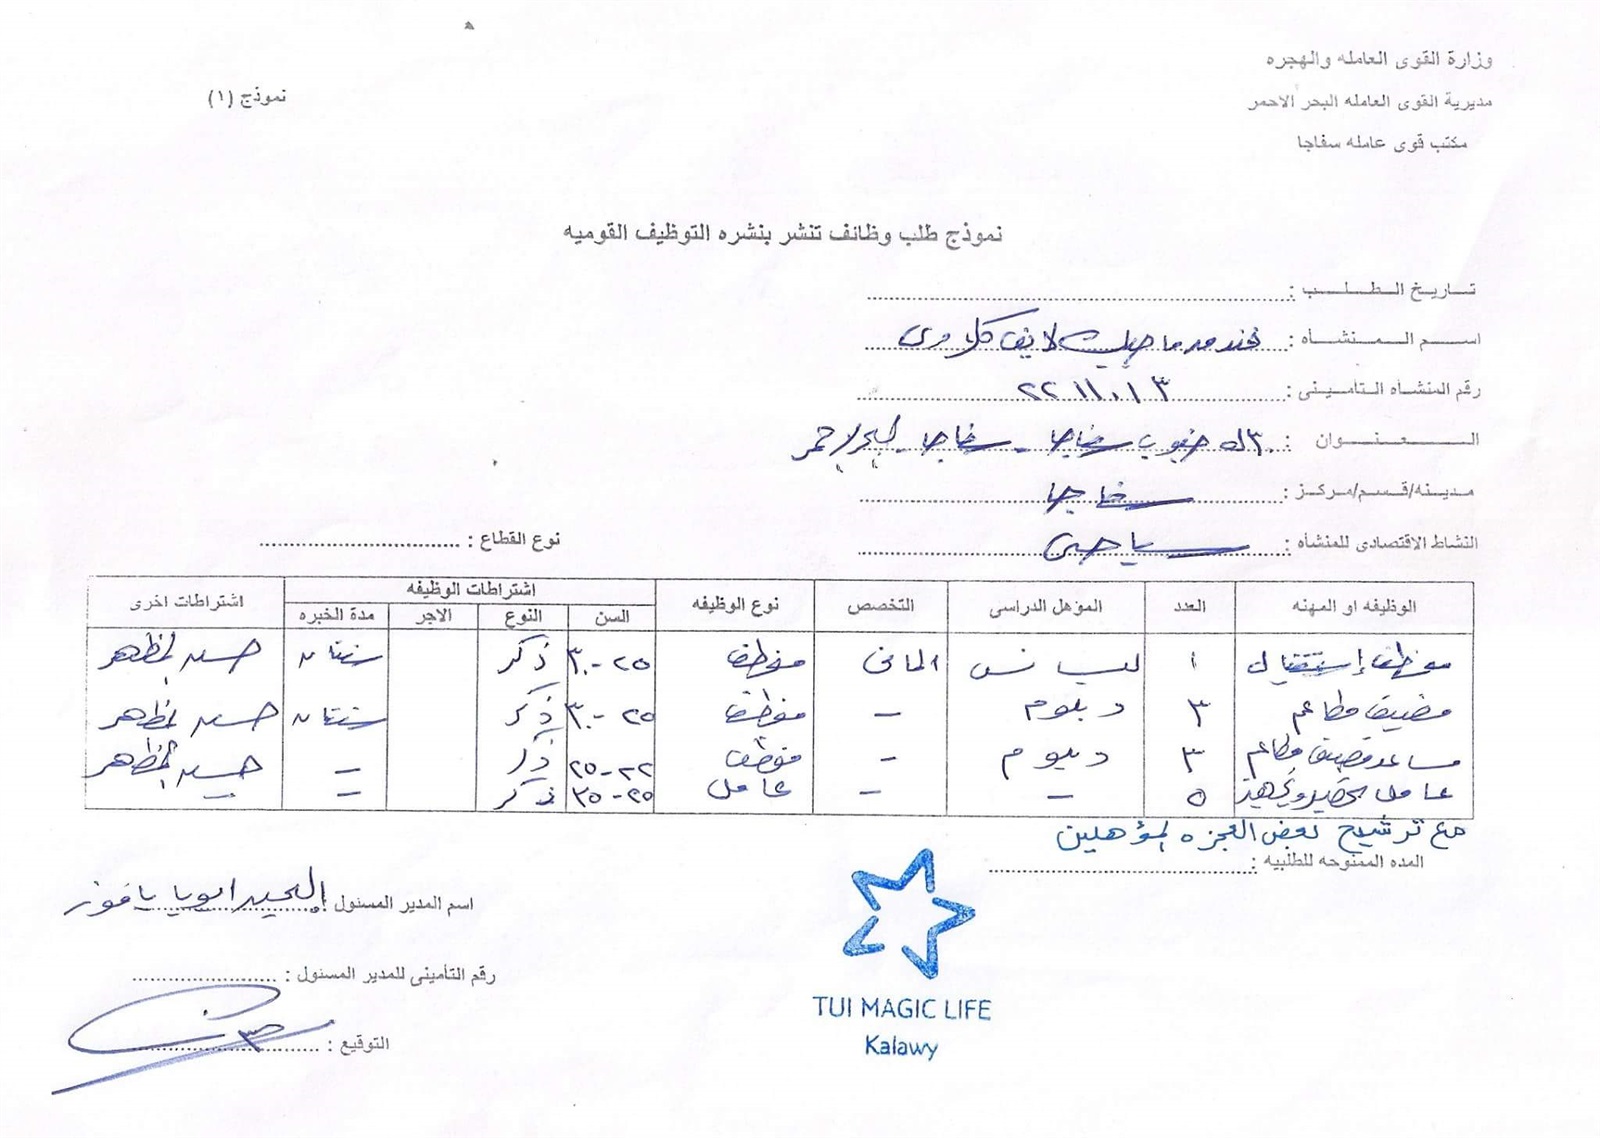 وزارة القوى العامله والهجره
مديرية القوى العامله البحر الاحمر
نموذج (١)
مكتب قوى عامله سفاجا
نموذج طلب وظائف تنشر بنشره التوظيف القوميه
تاريخ الطلب :
اسم المنشأه : فندق ماجيك لايف كلاوى
رقم المنشاه التأمينى : ٢٢١١٠١٣
العنوان : ٣٠ك جنوب سفاجا - سفاجا - البحر الاحمر
مدينه/قسم/مركز : سفاجا
النشاط الاقتصادى للمنشأه : سياحى
نوع القطاع :
الوظيفه او المهنه العدد المؤهل الدراسى التخصص نوع الوظيفه اشتراطات الوظيفه اشتراطات اخرى
السن النوع الاجر مدة الخبره
موظف إستقبال ١ ليسانس المانى موظف ٢٥-٣٠ ذكر سنتان حسن المظهر
مضيف مطاعم ٣ دبلوم - موظف ٢٥-٣٠ ذكر سنتان حسن المظهر
مساعد مضيف مطاعم ٣ دبلوم - موظف ٢٢-٢٥ ذكر - حسن المظهر
عامل تحضير وتجهيز ٥ - - عامل ٢٥-٣٥ ذكر -
مع ترشيح بعض العجزه المؤهلين
المده الممنوحه للطلبيه :
اسم المدير المسئول :
رقم التأمينى للمدير المسئول :
التوقيع :
TUI MAGIC LIFE
Kalawy